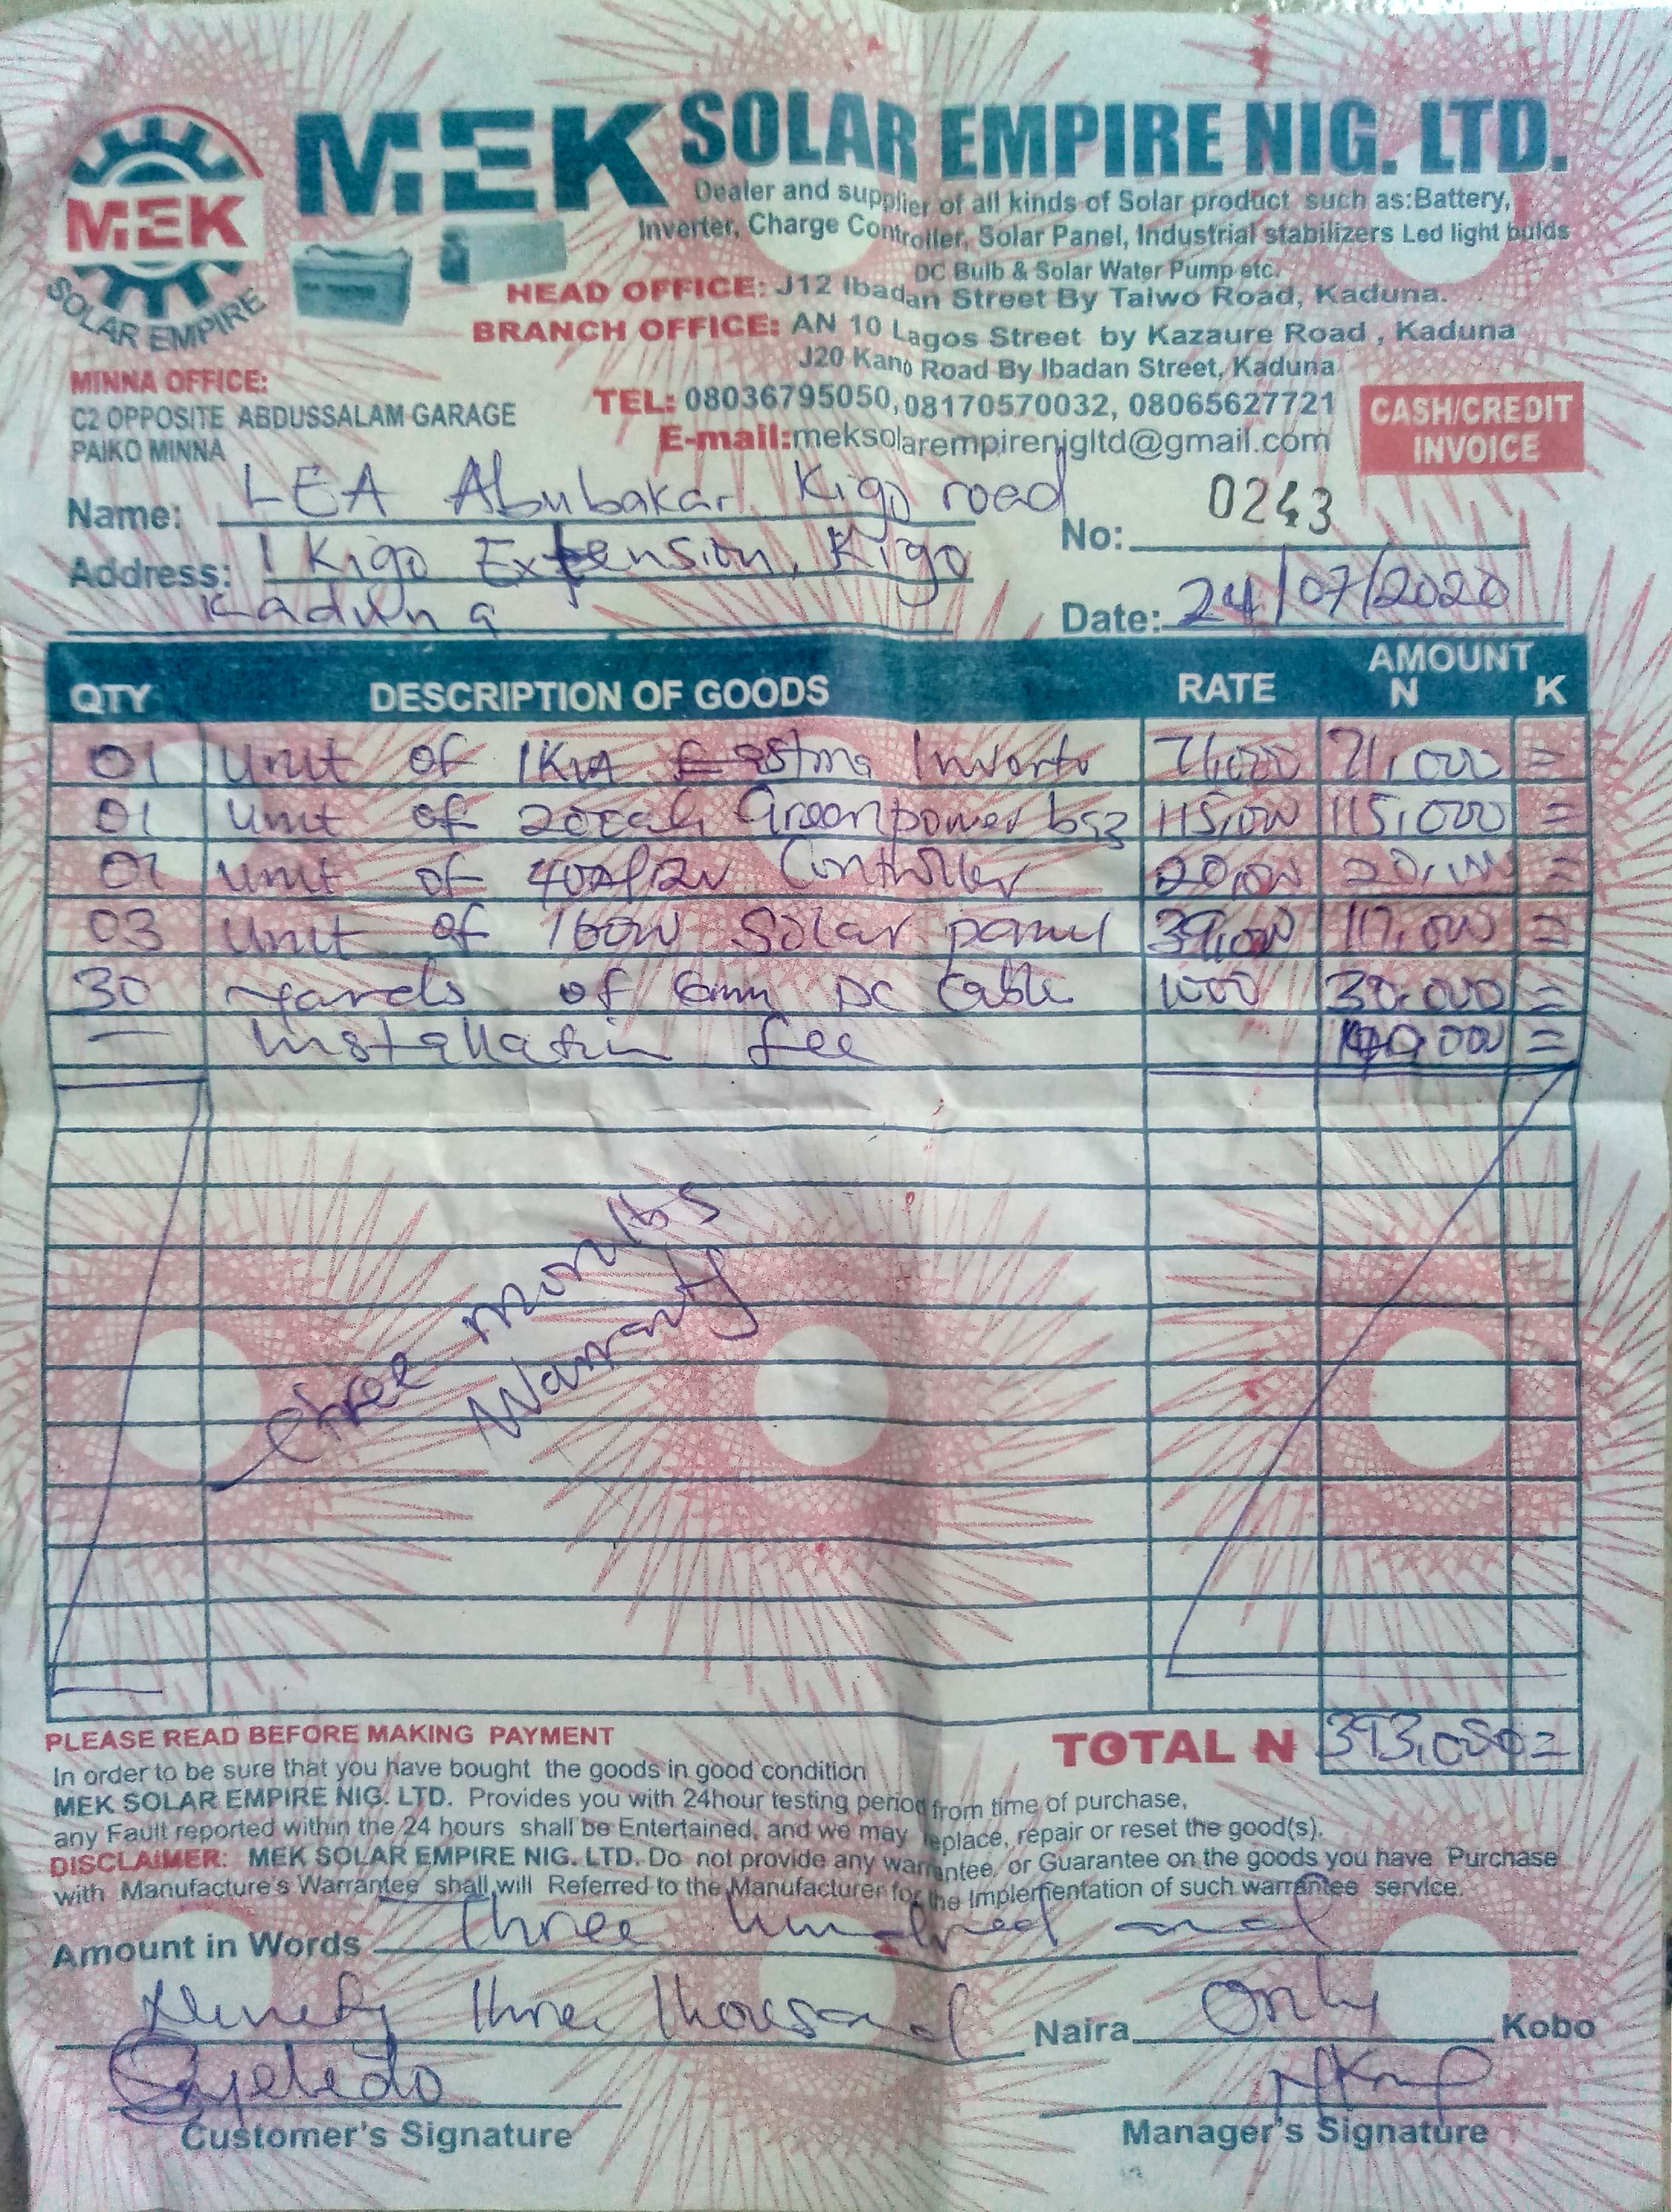 MEK SOLAR EMPIRE NIG. LTD.
MEK
SOLAR EMPIRE
Dealer and supplier of all kinds of Solar product such as:Battery,
Inverter, Charge Controller, Solar Panel, Industrial stabilizers Led light bulds
DC Bulb & Solar Water Pump etc.
HEAD OFFICE: J12 Ibadan Street By Taiwo Road, Kaduna.
BRANCH OFFICE: AN 10 Lagos Street by Kazaure Road , Kaduna
J20 Kano Road By Ibadan Street, Kaduna
MINNA OFFICE:
C2 OPPOSITE ABDUSSALAM GARAGE
PAIKO MINNA
TEL: 08036795050, 08170570032, 08065627721
E-mail:meksolarempirenigltd@gmail.com
CASH/CREDIT
INVOICE
Name: LEA Abubakar Kigo road
No: 0243
Address: 1 Kigo Extension, Kigo
Kaduna
Date: 24/07/2020
QTY DESCRIPTION OF GOODS RATE AMOUNT
N K
01 Unit of 1KVA Inverter 71,000 71,000 =
01 Unit of 200ah Greenpower 115,000 115,000 =
01 Unit of 40A/12v Controller 20,000 20,000 =
03 Unit of 160W Solar panel 39,000 117,000 =
30 yards of 6mm DC Cable 1000 30,000 =
— Installation fee =
three months
Warranty
PLEASE READ BEFORE MAKING PAYMENT
TOTAL N 393,000 =
In order to be sure that you have bought the goods in good condition
MEK SOLAR EMPIRE NIG. LTD. Provides you with 24hour testing period from time of purchase,
any Fault reported within the 24 hours shall be Entertained, and we may replace, repair or reset the good(s).
DISCLAIMER: MEK SOLAR EMPIRE NIG. LTD. Do not provide any warrantee, or Guarantee on the goods you have Purchase
with Manufacture's Warrantee shall,will Referred to the Manufacturer for the Implementation of such warrantee service.
Amount in Words Three hundred and
Ninety three thousand Naira Only Kobo
Customer's Signature
Manager's Signature